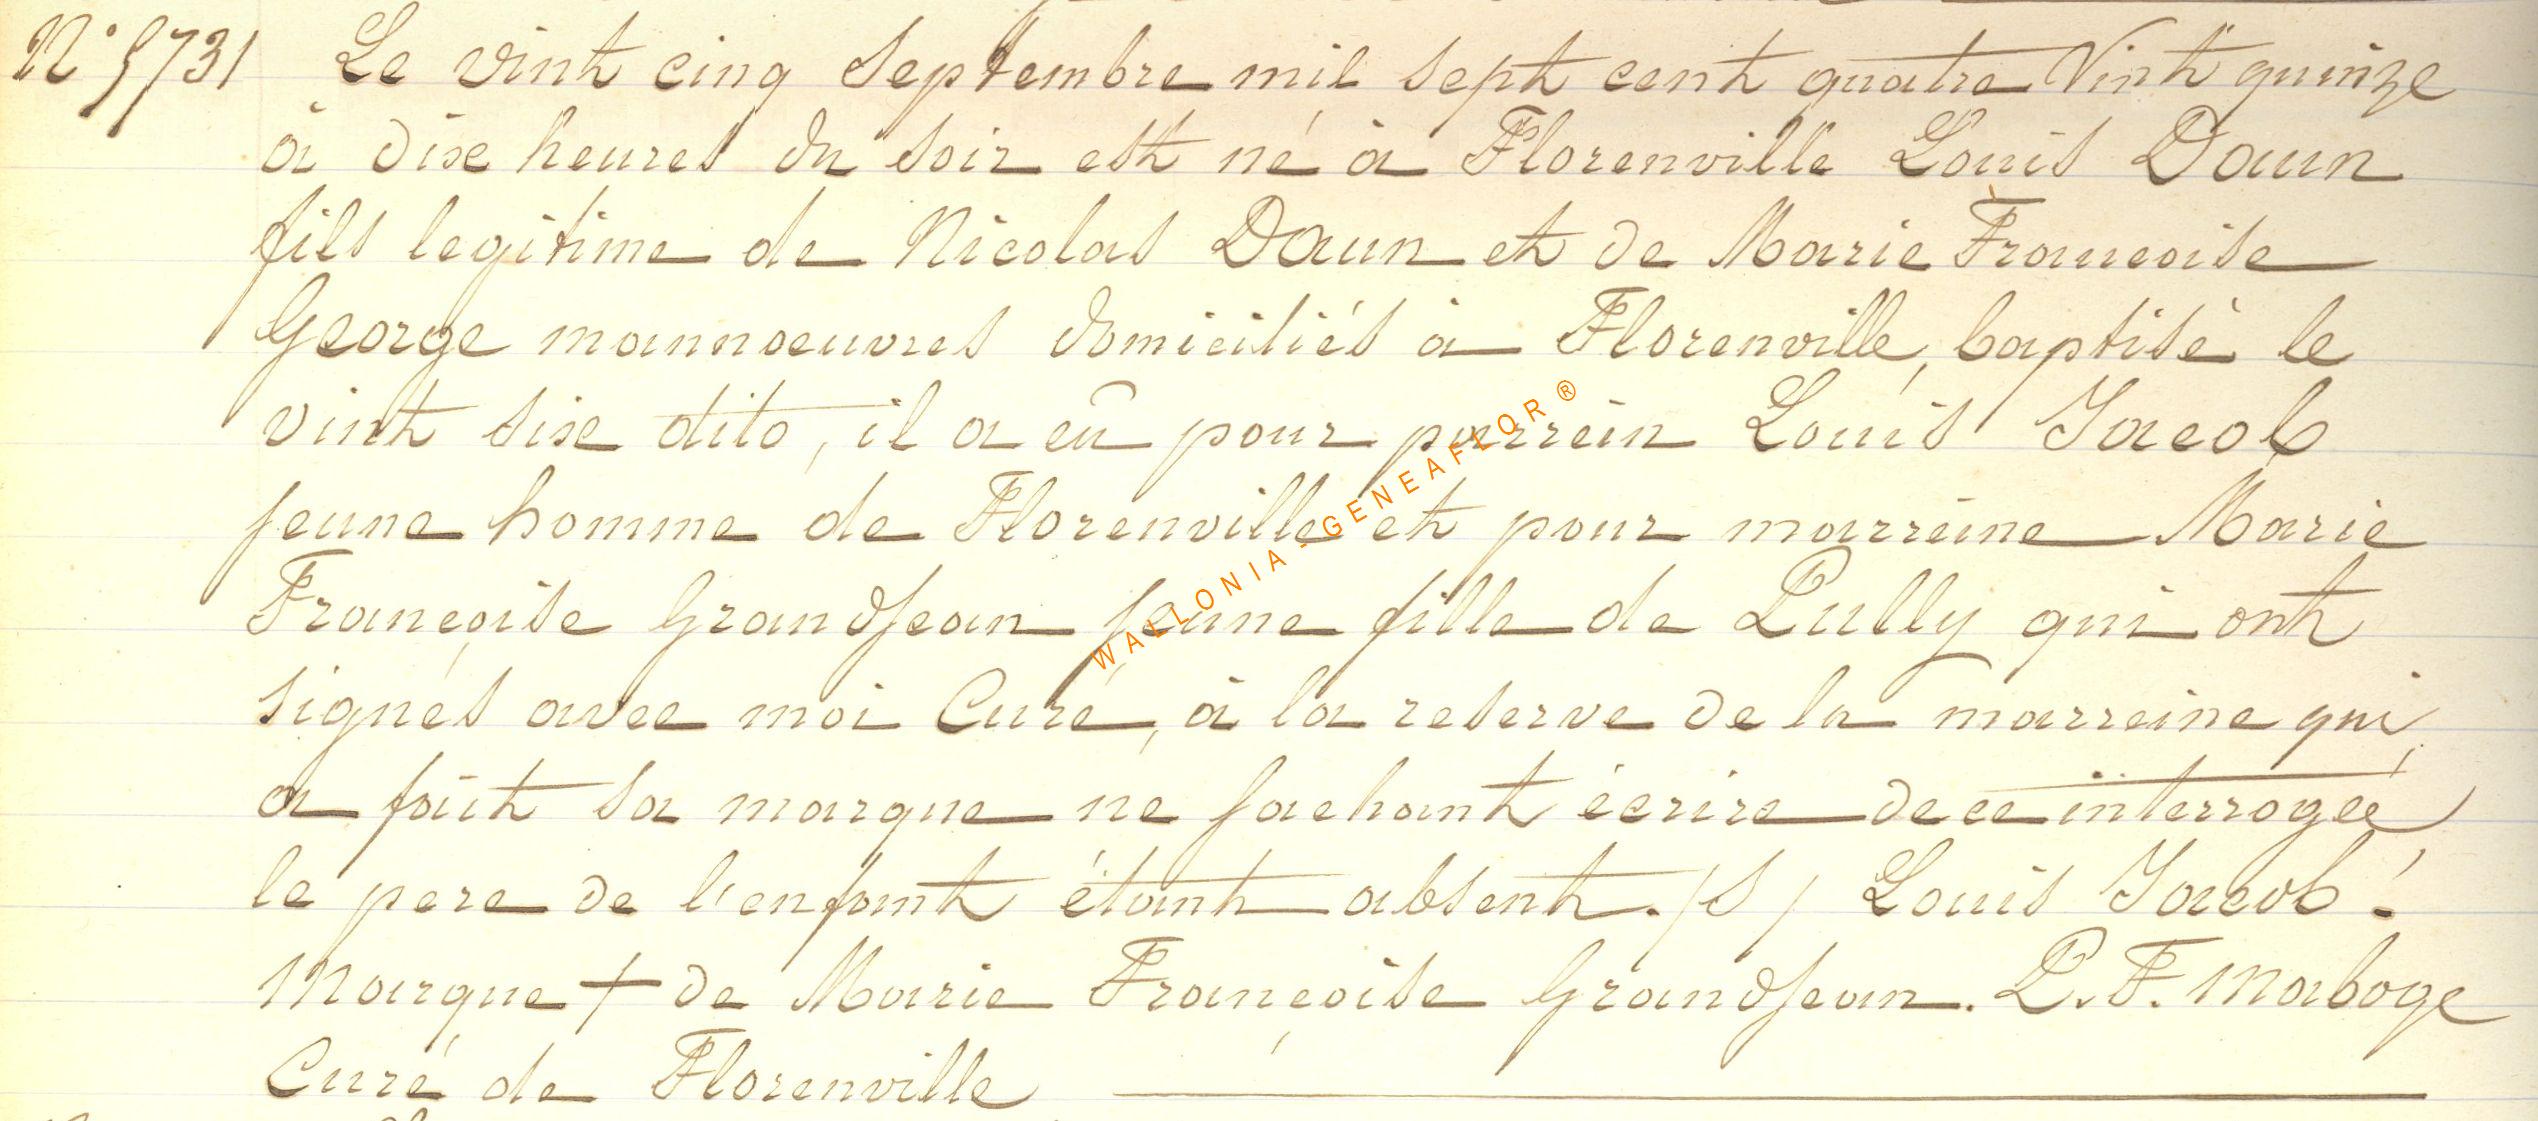 N° 5731 Le vint cinq Septembre mil sept cent quatre Vint quinze
à dix heures du soir est né à Florenville Louis Daun
fils legitime de Nicolas Daun et de Marie Francoise
George mannoeuvres domiciliés à Florenville, baptisé le
vint six dito, il a eû pour parrein Louis Jacob
jeune homme de Florenville et pour marreine Marie
Françoise Grandjean jeune fille de Pully qui ont
signés avec moi Curé, à la reserve de la marreine qui
a fait sa marque ne sachant écrire de ce interrogée,
le pere de l'enfant étant absent. /S/ Louis Jacob.
Marque + de Marie Françoise Grandjean. P. F. Maboge
Curé de Florenville
WALLONIA - GENEAFLOR ®